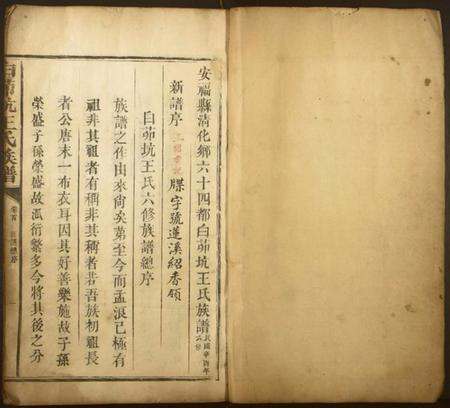 安福縣清化鄉六十四都白茆坑王氏族譜民國辛酉年六修
新譜序
牒字號蓮溪紹香領
白茆坑王氏六修族譜總序
族譜之作由來尙矣第至今而孟浪已極有
祖非其祖者有稱非其種者若吾族初祖長
者公唐末一布衣耳因其好善樂施故子孫
榮盛子孫榮盛故瓜衍繁多今將其後之分
白茆坑王氏族譜
卷首
新譜總序
一